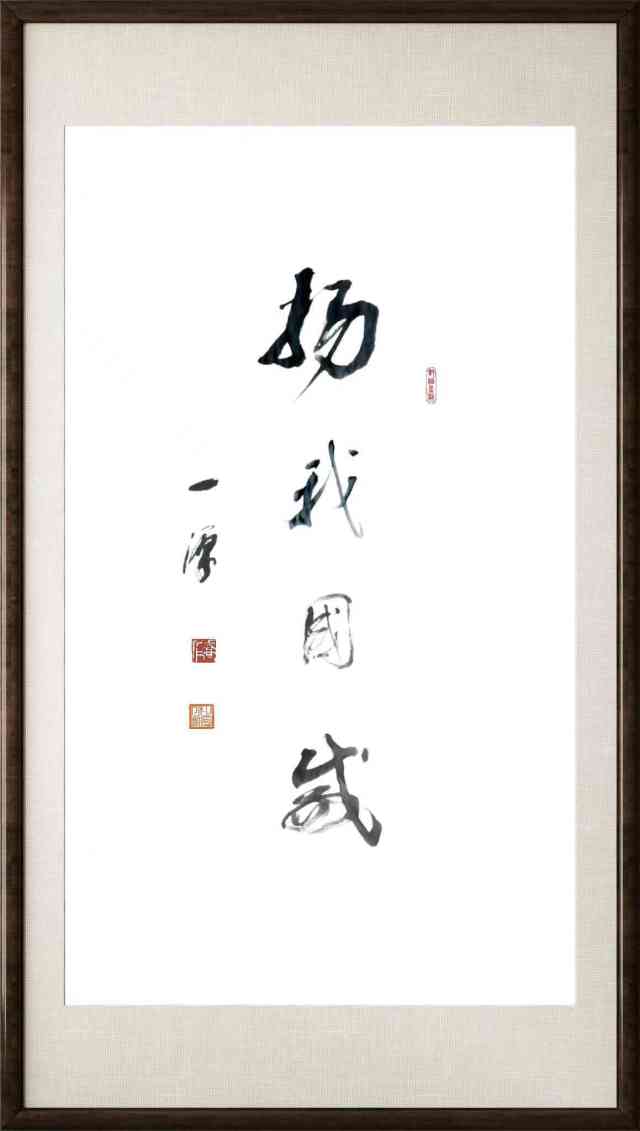 扬我國威
一源